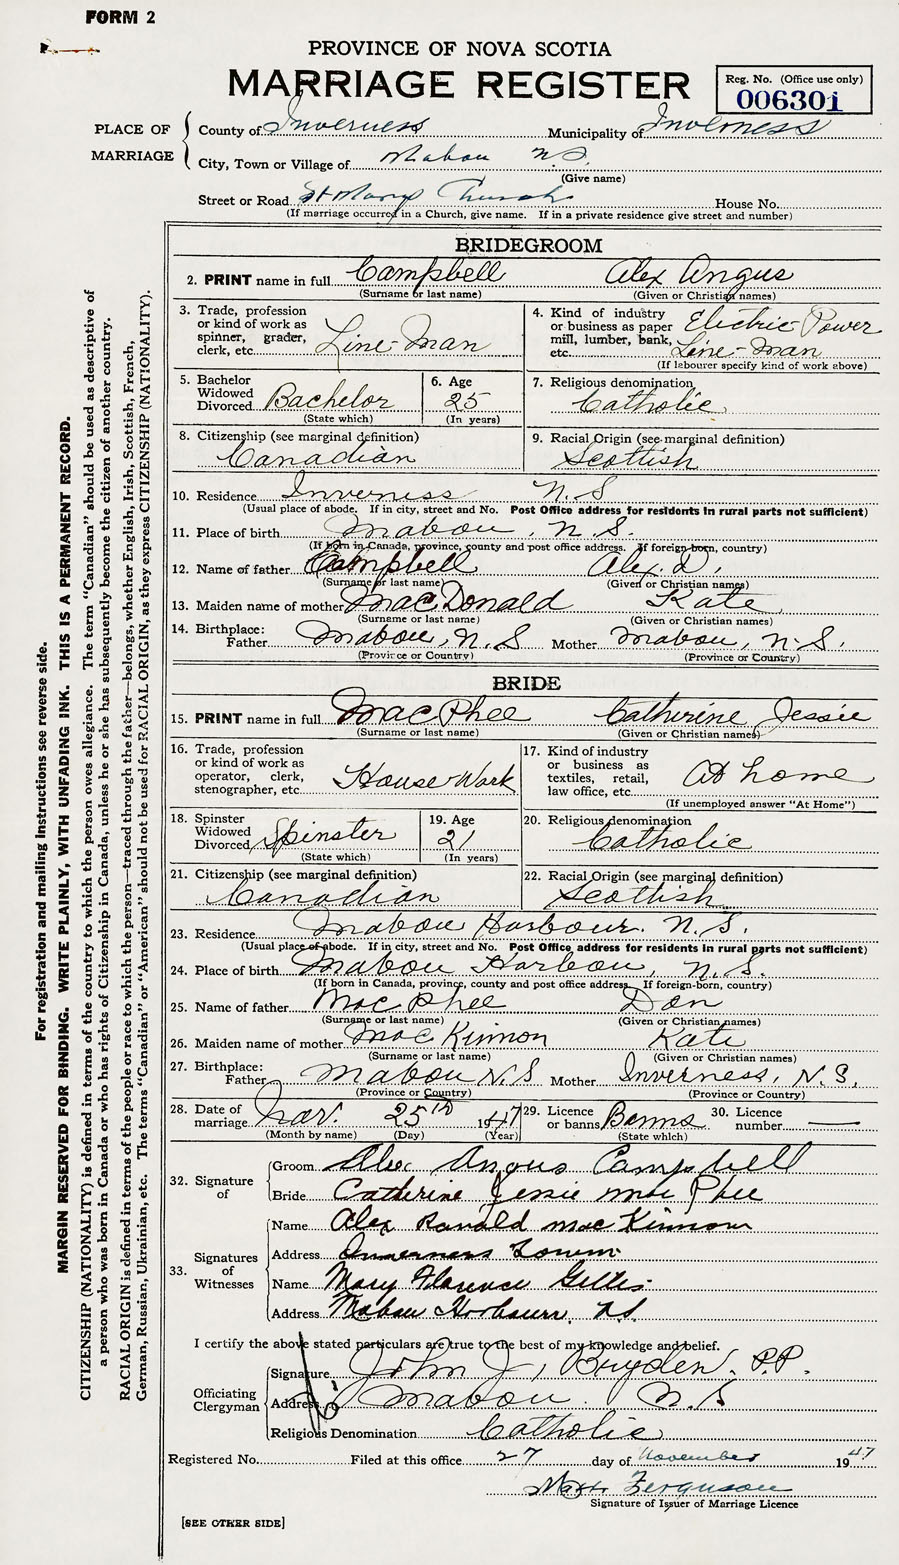 FORM 2
PROVINCE OF NOVA SCOTIA
MARRIAGE REGISTER
Reg. No. (Office use only)
006301
PLACE OF MARRIAGE
County of Inverness Municipality of Inverness
City, Town or Village of Mabou N.S.
(Give name)
Street or Road St Marys Church House No.
(If marriage occurred in a Church, give name. If in a private residence give street and number)
BRIDEGROOM
2. PRINT name in full Campbell Alex Angus
(Surname or last name) (Given or Christian names)
3. Trade, profession or kind of work as spinner, grader, clerk, etc. Line-Man
4. Kind of industry or business as paper mill, lumber, bank, etc. Electric-Power Line-Man
(If labourer specify kind of work above)
5. Bachelor Widowed Divorced Bachelor
(State which)
6. Age 25
(In years)
7. Religious denomination Catholic
8. Citizenship (see marginal definition) Canadian
9. Racial Origin (see marginal definition) Scottish
10. Residence Inverness N.S
(Usual place of abode. If in city, street and No. Post Office address for residents in rural parts not sufficient)
11. Place of birth Mabou, N.S.
(If born in Canada, province, county and post office address. If foreign-born, country)
12. Name of father Campbell Alex. D.
(Surname or last name) (Given or Christian names)
13. Maiden name of mother MacDonald Kate
(Surname or last name) (Given or Christian names)
14. Birthplace: Father Mabou, N.S Mother Mabou, N.S.
(Province or Country) (Province or Country)
BRIDE
15. PRINT name in full MacPhee Catherine Jessie
(Surname or last name) (Given or Christian names)
16. Trade, profession or kind of work as operator, clerk, stenographer, etc. House Work
17. Kind of industry or business as textiles, retail, law office, etc. At home
(If unemployed answer "At Home")
18. Spinster Widowed Divorced Spinster
(State which)
19. Age 21
(In years)
20. Religious denomination Catholic
21. Citizenship (see marginal definition) Canadian
22. Racial Origin (see marginal definition) Scottish
23. Residence Mabou Harbour. N.S.
(Usual place of abode. If in city, street and No. Post Office address for residents in rural parts not sufficient)
24. Place of birth Mabou Harbou, N.S.
(If born in Canada, province, county and post office address. If foreign-born, country)
25. Name of father MacPhee Dan
(Surname or last name) (Given or Christian names)
26. Maiden name of mother MacKinnon Kate
(Surname or last name) (Given or Christian names)
27. Birthplace: Father Mabou N.S Mother Inverness, N.S.
(Province or Country) (Province or Country)
28. Date of marriage Nov. 25th 1947
(Month by name) (Day) (Year)
29. Licence or banns Banns
(State which)
30. Licence number —
32. Signature of
Groom Alex Angus Campbell
Bride Catherine Jessie MacPhee
33. Signatures of Witnesses
Name Alex Ranald MacKinnon
Address Inverness Town
Name Mary Florence Gillis
Address Mabou Harbour, N.S.
I certify the above stated particulars are true to the best of my knowledge and belief.
Officiating Clergyman
Signature John J, Bryden. P.P.
Address Mabou. N.S
Religious Denomination Catholic
Registered No. Filed at this office 27 day of November 1947
Ferguson
Signature of Issuer of Marriage Licence
[SEE OTHER SIDE]
For registration and mailing instructions see reverse side.
MARGIN RESERVED FOR BINDING. WRITE PLAINLY, WITH UNFADING INK. THIS IS A PERMANENT RECORD.
CITIZENSHIP (NATIONALITY) is defined in terms of the country to which the person owes allegiance. The term "Canadian" should be used as descriptive of
a person who was born in Canada or who has rights of Citizenship in Canada, unless he or she has subsequently become the citizen of another country.
RACIAL ORIGIN is defined in terms of the people or race to which the person—traced through the father—belongs, whether English, Irish, Scottish, French,
German, Russian, Ukrainian, etc. The terms "Canadian" or "American" should not be used for RACIAL ORIGIN, as they express CITIZENSHIP (NATIONALITY).